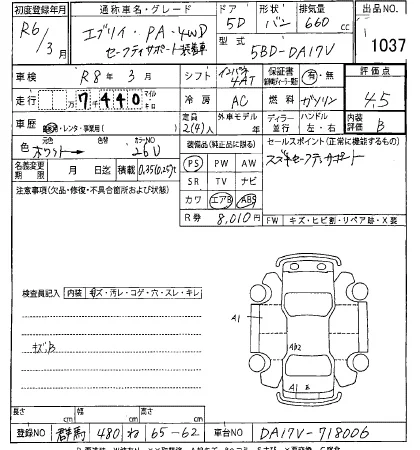 初度登録年月 通称車名・グレード ドア 形状 排気量 出品NO
R6/3月 エブリイ・PA・4WD 5D バン 660cc 1037
セーフティサポート装着車 型式 5BD-DA17V
車検 R8年 3月 シフト インパネ 4AT 保証書 有・無 評価点
走行 7千440 マイル キロ 冷房 AC 燃料 ガソリン 4.5
車歴 自家・レンタ・事業用( ) 定員 2(4)人 外車モデル 年 ディーラー 並行 ハンドル 左・右 内装評価 B
色 元色 ホワイト→ 色替 カラーNO 26U 装備品(純正品に限る) セールスポイント(正常に機能するもの)
名義変更期限 月 日迄 積載 0.35(0.25)t PS PW AW スズキセーフティサポート
注意事項(欠品・修復・不具合箇所および状態) SR TV ナビ
カワ エアB ABS
R券 8,010円 FW キズ・ヒビ割・リペア跡・X要
検査員記入 内装 キズ・汚レ・コゲ・穴・スレ・キレ
A1
キズB A2
A1
長さ cm 幅 cm 高さ cm
登録NO 群馬 480 ね 65-62 車台NO DA17V-718006